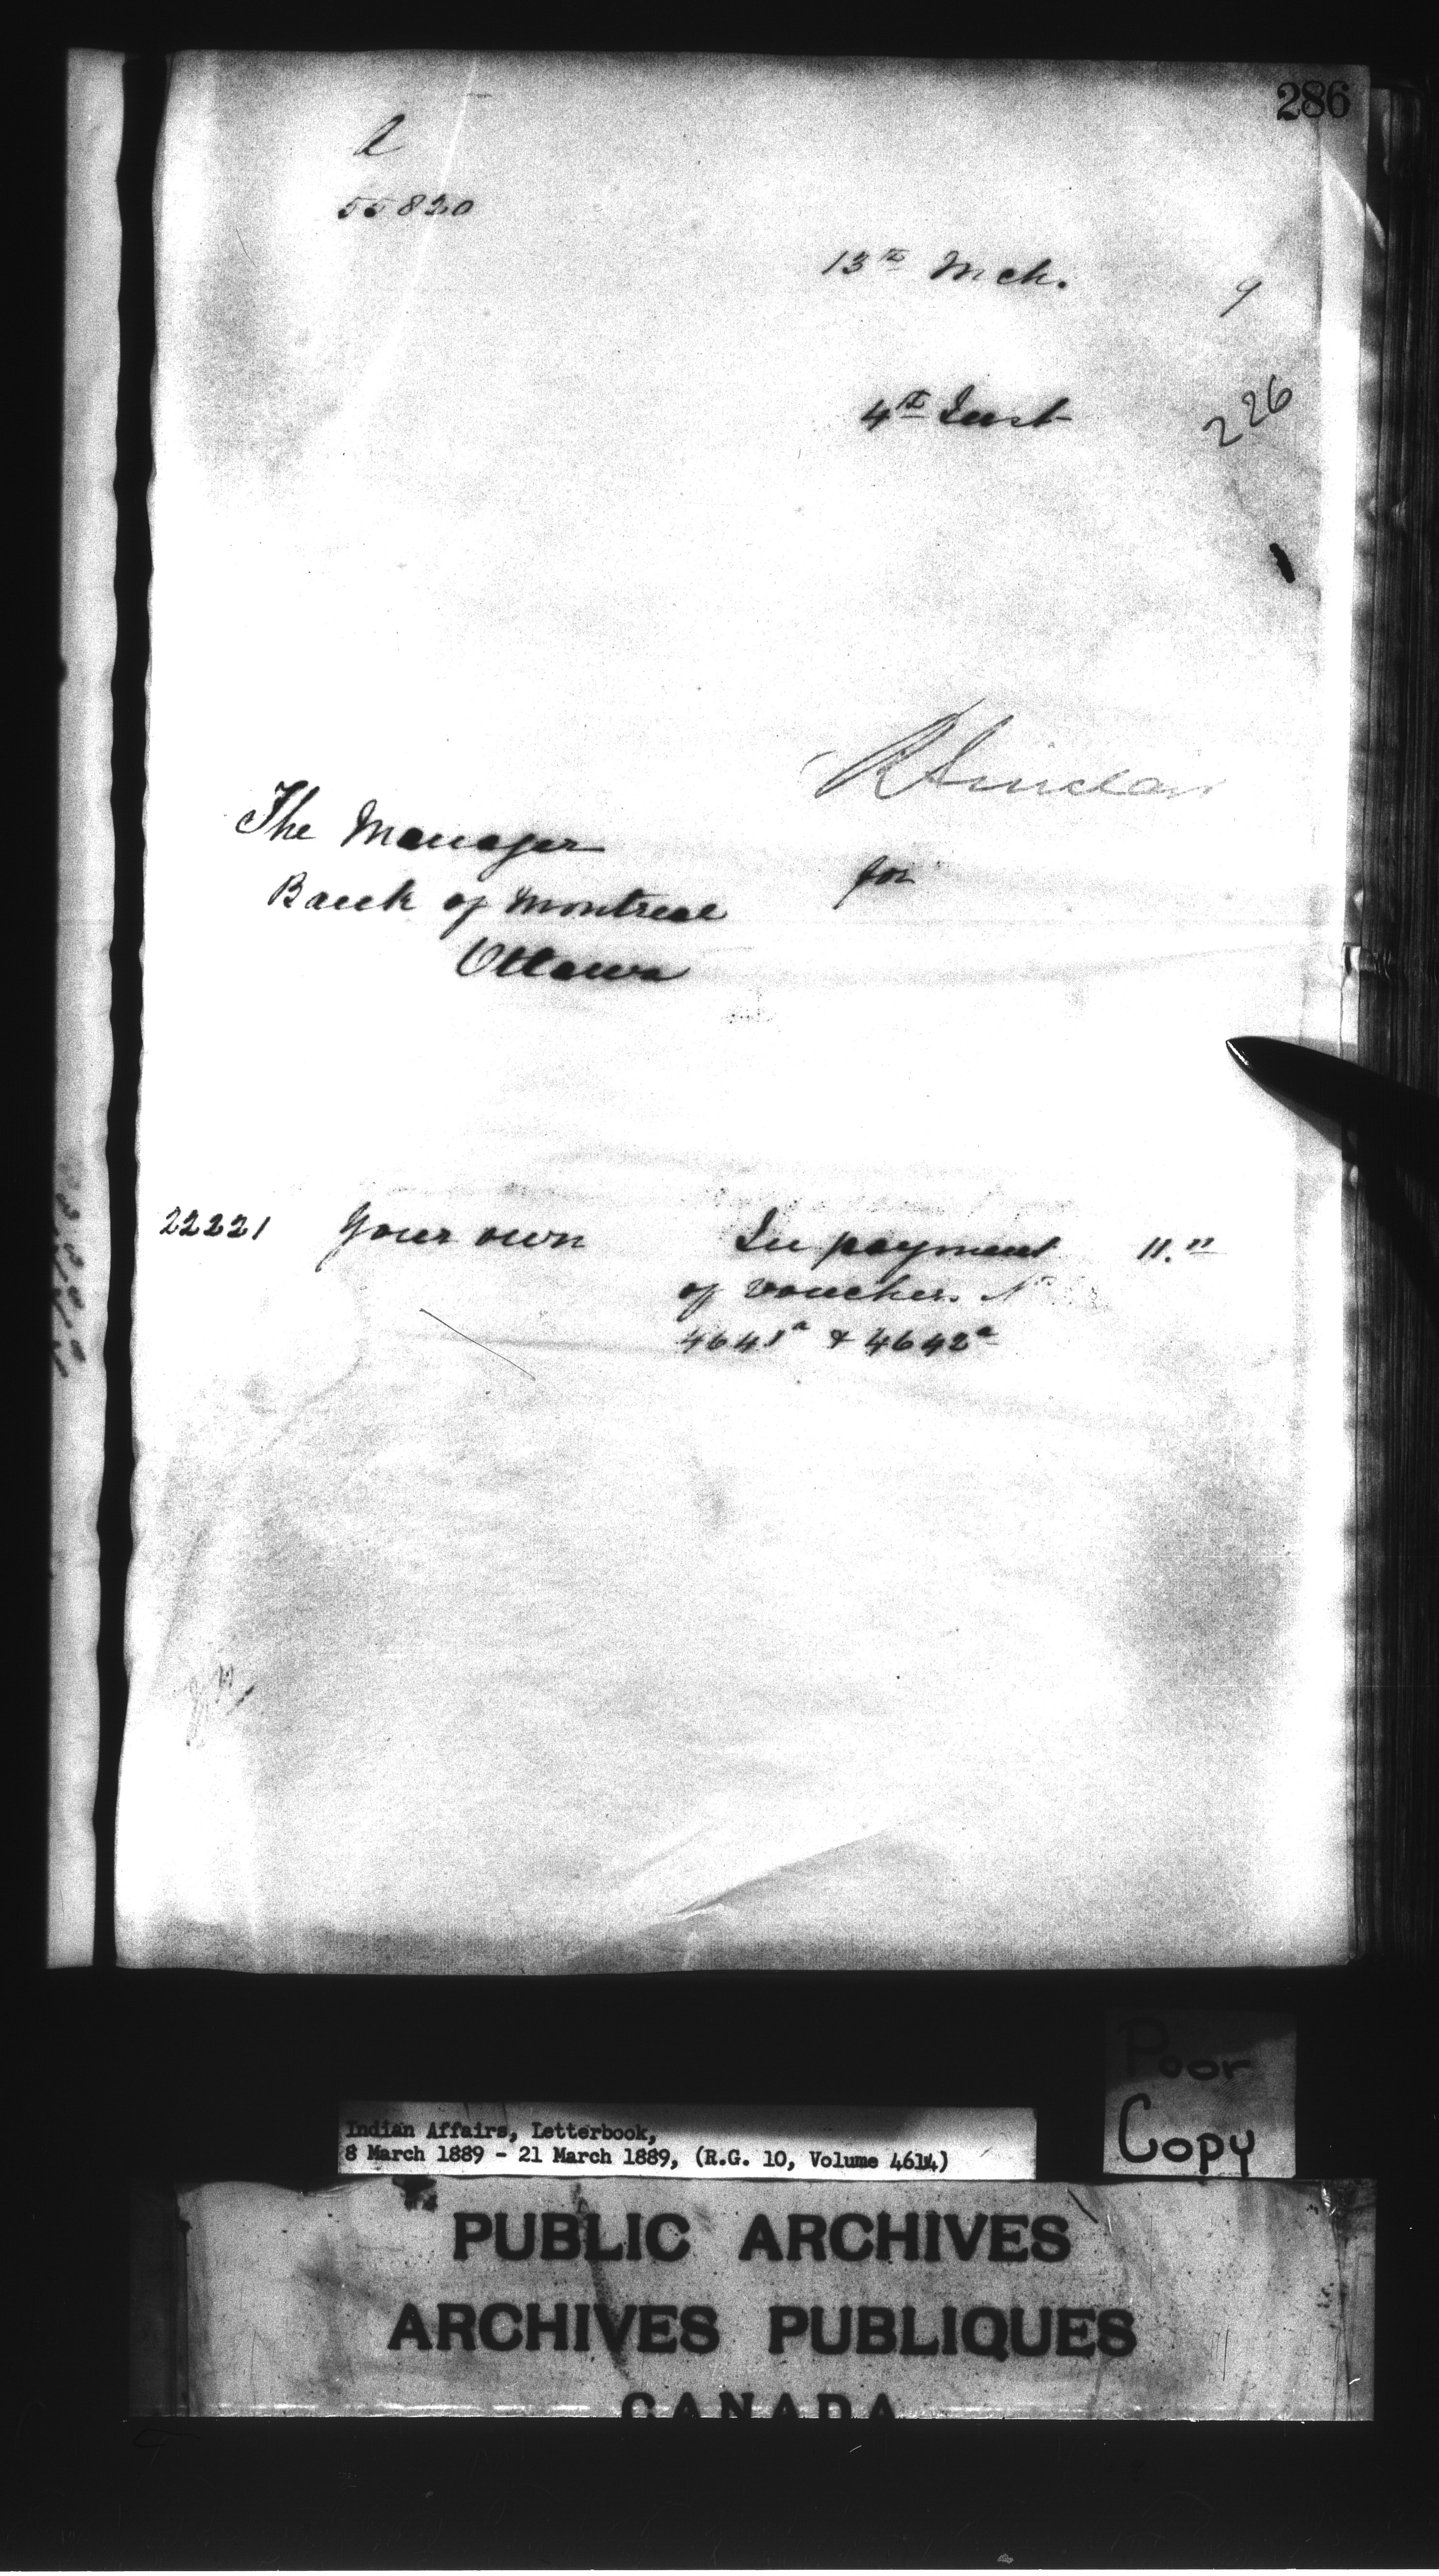 286
A
55820
13th Mch. 9
4th Inst 226
R Sinclair
The Manager for
Bank of Montreal
Ottawa
22221 Your own In payment 11.11
of vouchers No
4641a & 4642a
Poor
Copy
Indian Affairs, Letterbook,
8 March 1889 - 21 March 1889, (R.G. 10, Volume 4614)
PUBLIC ARCHIVES
ARCHIVES PUBLIQUES
CANADA